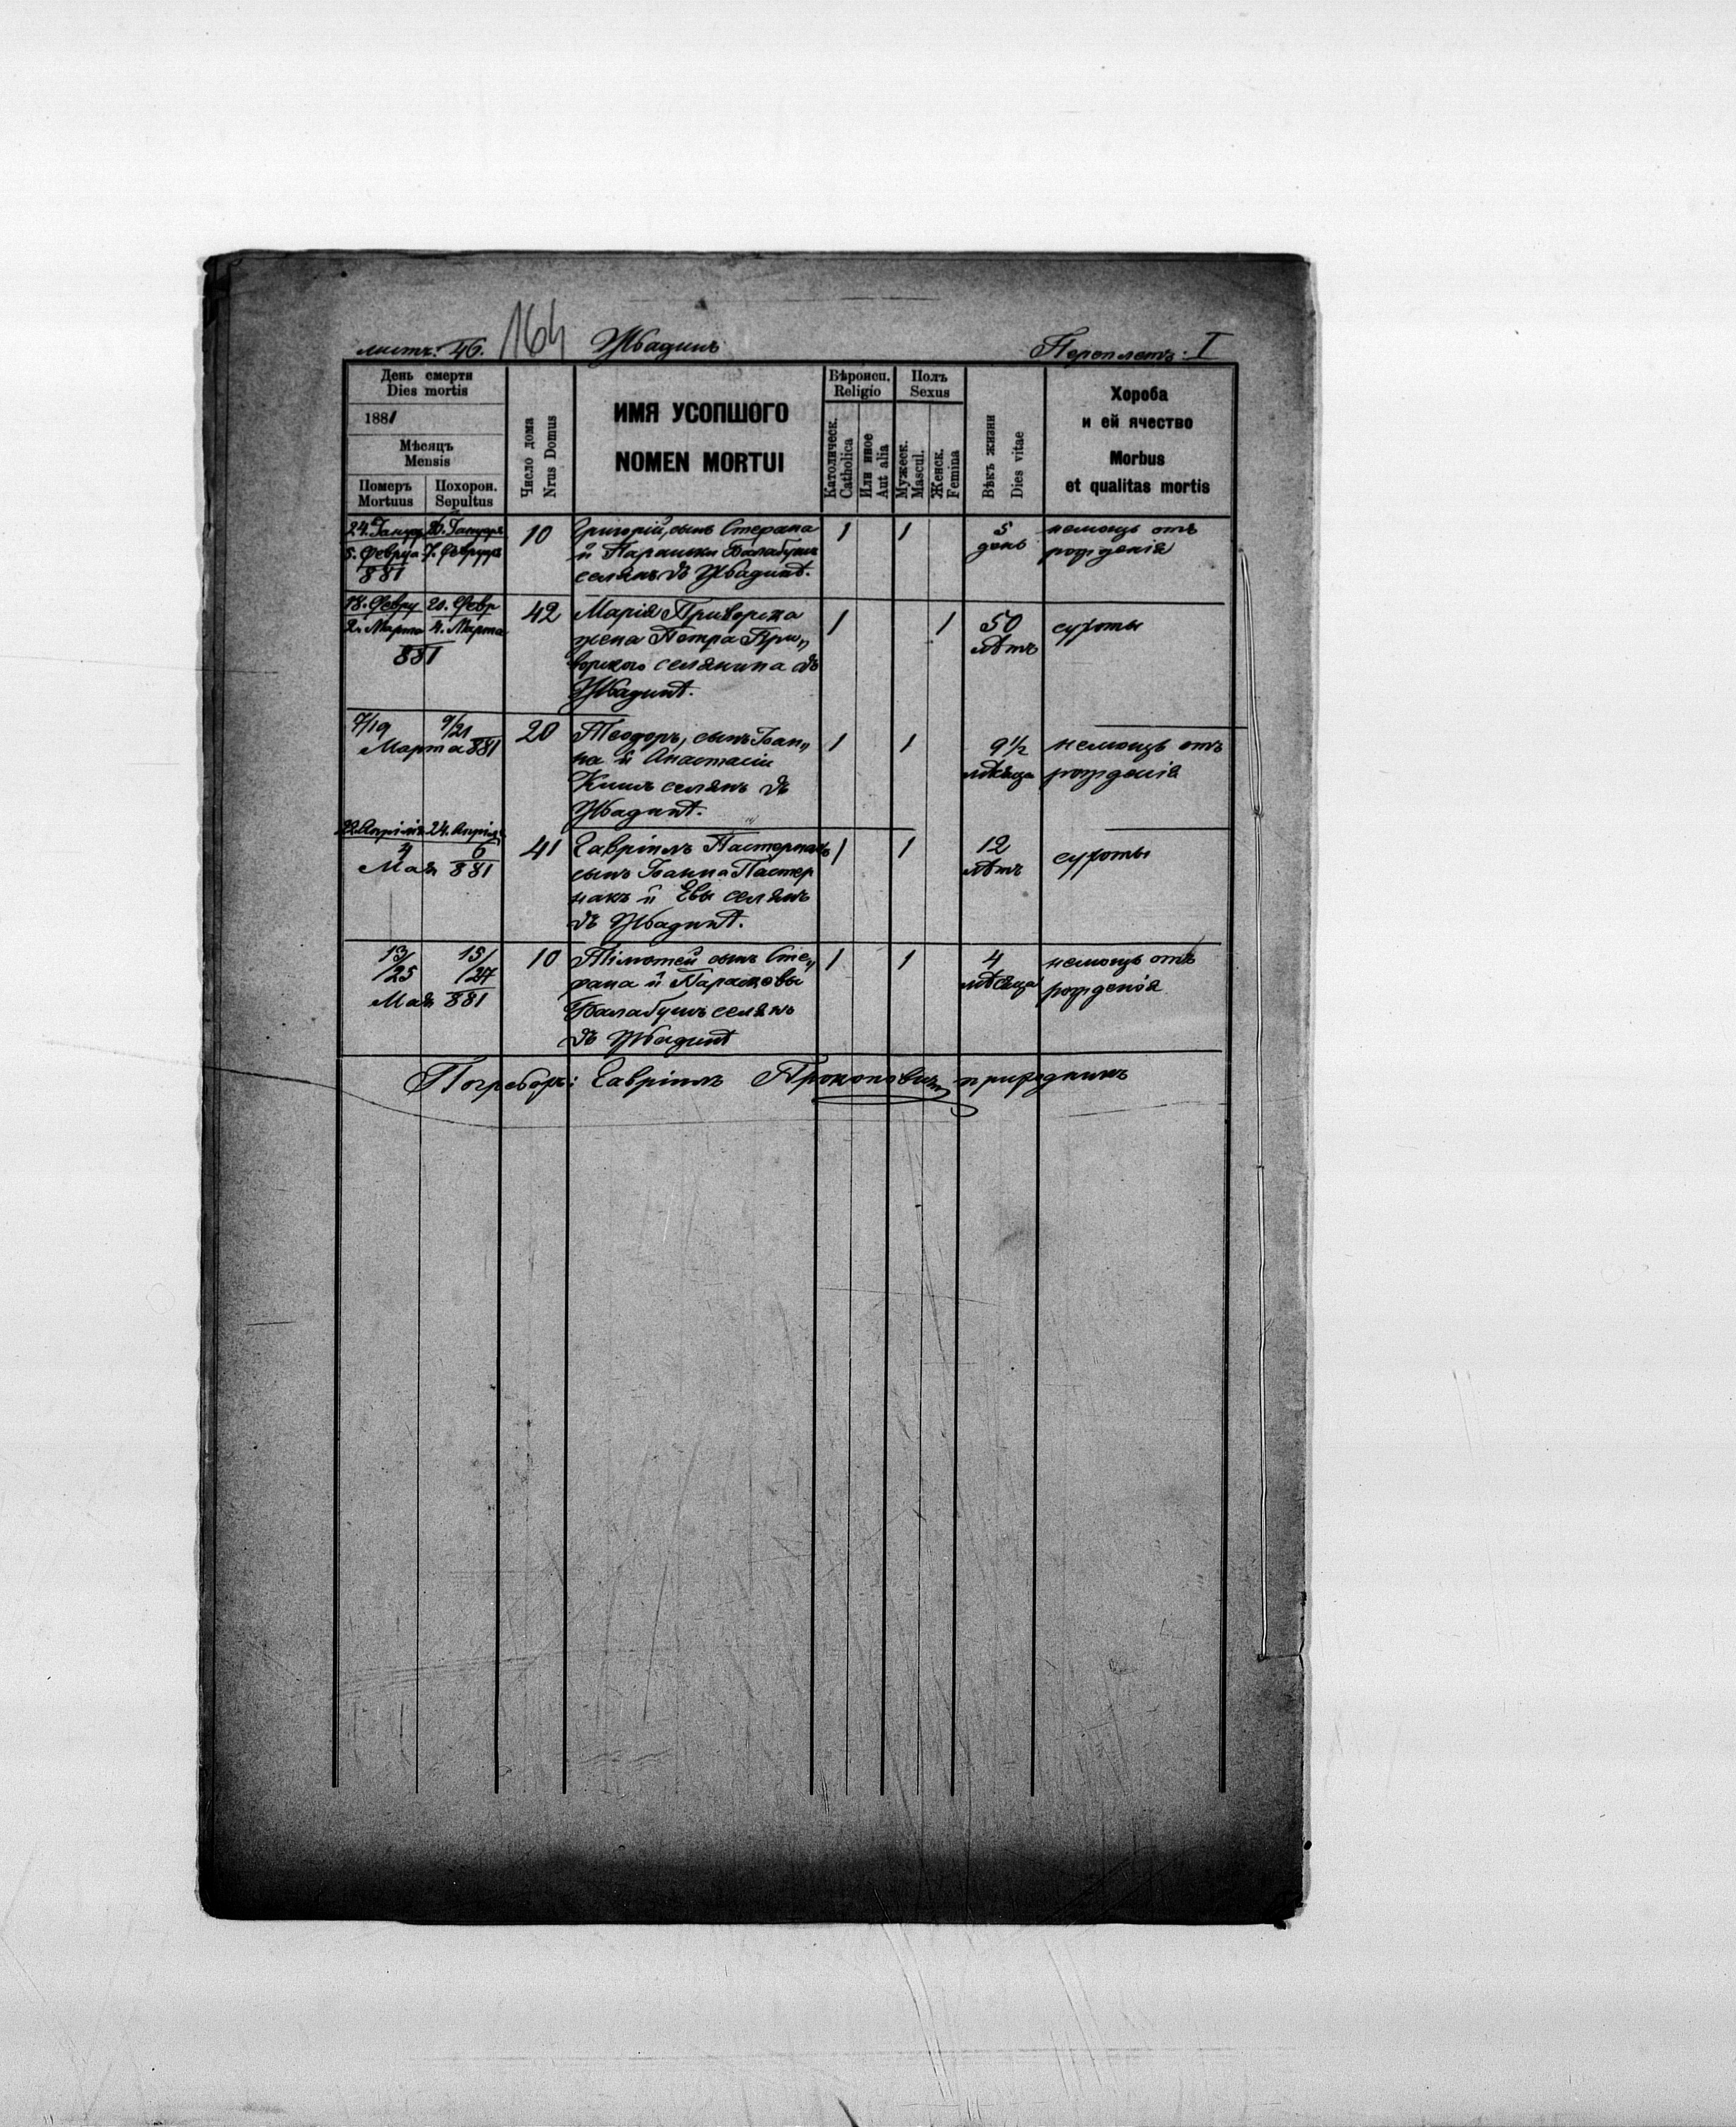 листъ: 46. 164 Жвадинъ Переплетъ: I
День смерти
Dies mortis
1881
Мѣсяцъ
Mensis
Померъ
Mortuus
Похорон.
Sepultus
Число дома
Nrus Domus
ИМЯ УСОПШОГО
NOMEN MORTUI
Вѣроисп.
Religio
Католическ.
Catholica
Или иное
Aut alia
Полъ
Sexus
Мужеск.
Mascul.
Женск.
Femina
Вѣкъ жизни
Dies vitae
Хороба
и ей ячество
Morbus
et qualitas mortis
24. Януар 26. Януаря 10 Григорій, сынъ Стефана 1 1 5 немощь отъ
5. Февруа 7. Февруар и Параски Балабушъ день рожденія
881 селянъ въ Жвадинѣ.
18. Февру 20. Февр 42 Марія Приворска 1 1 50 сухоты
2. Марта 4. Марта жена Петра При„ лѣтъ
881 ворского селянина въ
Жвадинѣ.
7/19 9/21 20 Теодоръ, сынъ Іоан„ 1 1 9 1/2 немощь отъ
Марта 881 на и Анастасіи мѣсяца рожденія
селянъ въ
Жвадинѣ.
22. Апріля 24. Апріля
4 6 41 Гавріилъ Пастернакъ 1 1 12 сухоты
Мая 881 сынъ Іоанна Пастер лѣтъ
накъ и Евы селянъ
въ Жвадинѣ.
13/25 15/27 10 Тімотей сынъ Сте„ 1 1 4 немощь отъ
Мая 881 фана и Парасковы мѣсяца рожденія
Балабушъ селянъ
въ Жвадинѣ
Погреборъ: Гавріилъ Прокоповичъ